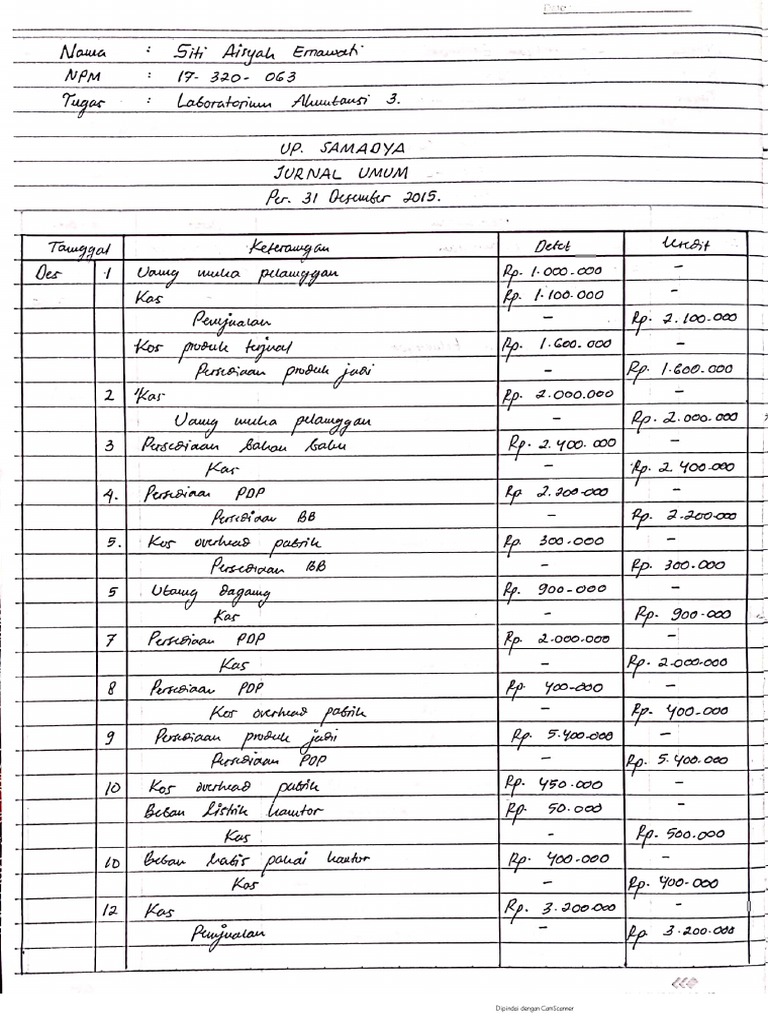 Date:
Nama : Siti Aisyah Ernawati
NPM : 17-320-063
Tugas : Laboratorium Akuntansi 3.
UP. SAMADYA
JURNAL UMUM
Per. 31 Desember 2015.
Tanggal Keterangan Debet Kredit
Des 1 Uang muka pelanggan Rp. 1.000.000 -
Kas Rp. 1.100.000 -
Penjualan - Rp. 2.100.000
Kos produk terjual Rp. 1.600.000 -
Persediaan produk jadi - Rp. 1.600.000
2 Kas Rp. 2.000.000 -
Uang muka pelanggan - Rp. 2.000.000
3 Persediaan bahan baku Rp. 2.400.000 -
Kas - Rp. 2.400.000
4. Persediaan PDP Rp. 2.200.000 -
Persediaan BB - Rp. 2.200.000
5. Kos overhead pabrik Rp. 300.000 -
Persediaan BB - Rp. 300.000
5 Utang dagang Rp. 900.000 -
Kas - Rp. 900.000
7 Persediaan PDP Rp. 2.000.000 -
Kas - Rp. 2.000.000
8 Persediaan PDP Rp. 400.000 -
Kos overhead pabrik - Rp. 400.000
9 Persediaan produk jadi Rp. 5.400.000 -
Persediaan PDP - Rp. 5.400.000
10 Kos overhead pabrik Rp. 450.000 -
Beban listrik kantor Rp. 50.000 -
Kas - Rp. 500.000
10 Beban habis pakai kantor Rp. 400.000 -
Kas - Rp. 400.000
12 Kas Rp. 3.200.000 -
Penjualan - Rp. 3.200.000
Dipindai dengan CamScanner